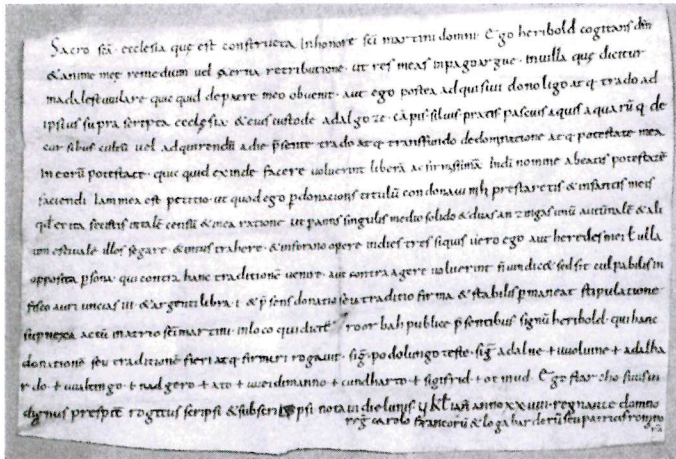 Sacro scā. ecclesia quę est constructa Inhonore scī martini domni. Ego heribold cogitans dīn
& anime meę remedium vel ęterna retributione. ut res meas inpago argue. inuilla quę dicitur
madalestuuilare quic quid de patre meo obuenit. aut ego postea adquisiui dono ligo atq. trado ad
ipsius supra scripta ecclęsia & eius custode adalgoze. cāpis siluis pratis pascuis aquis aquarū q. de
cur sibus cultū vel adquirendū adie psente trado atq. transfundo dedominatione atq. potestate mea
In eorū potestate. quic quid exinde facere uoluerint liberā ac firmissimā Indī nomine abeatis potestatē
faciendi. Iam mea est petitio. ut quod ego pdonacionis titulū condonaui mħ prestaretis & infantis meis
qđ et ita fecistis intalē censū & mea ratione. ut pannis singulis medio solido & duas anzingas unū autūnalē & ali
um estiuale illos segare. & intus trahere. & inferano opere indies tres siquis uero ego aut heredes mei ł ulla
opposita psona. qui contra hanc traditionē uenire. aut contra agere uoluerint n̄ uindic& sed sit culpabilis in
fisco auri uncias III. & argenti libra. I. & p̄sens donatio seu traditio firma & stabilis pmaneat stipulatione
supnexa actū matrio scī martini. Inloco qui dicit̄ roor bah publice p̄sentibus signū heribold. qui hanc
donationē seu traditionē fieri atq. firmiri rogauit. sig̅. podolungo teste. sig̅ adalne + uuoluine + adalha
rdo. + uualtingo + nadgero + ato + uueidimanno + cundharto + sigifrid. + otmud. Ego starcho
dignus presp̄te rogitus scripsi & subscripsi notaui die lunis. kł ian̄ anno xxuiiii. regnante domno
reg̅ carolo francorū & logabardorū seu patricius romano
rū